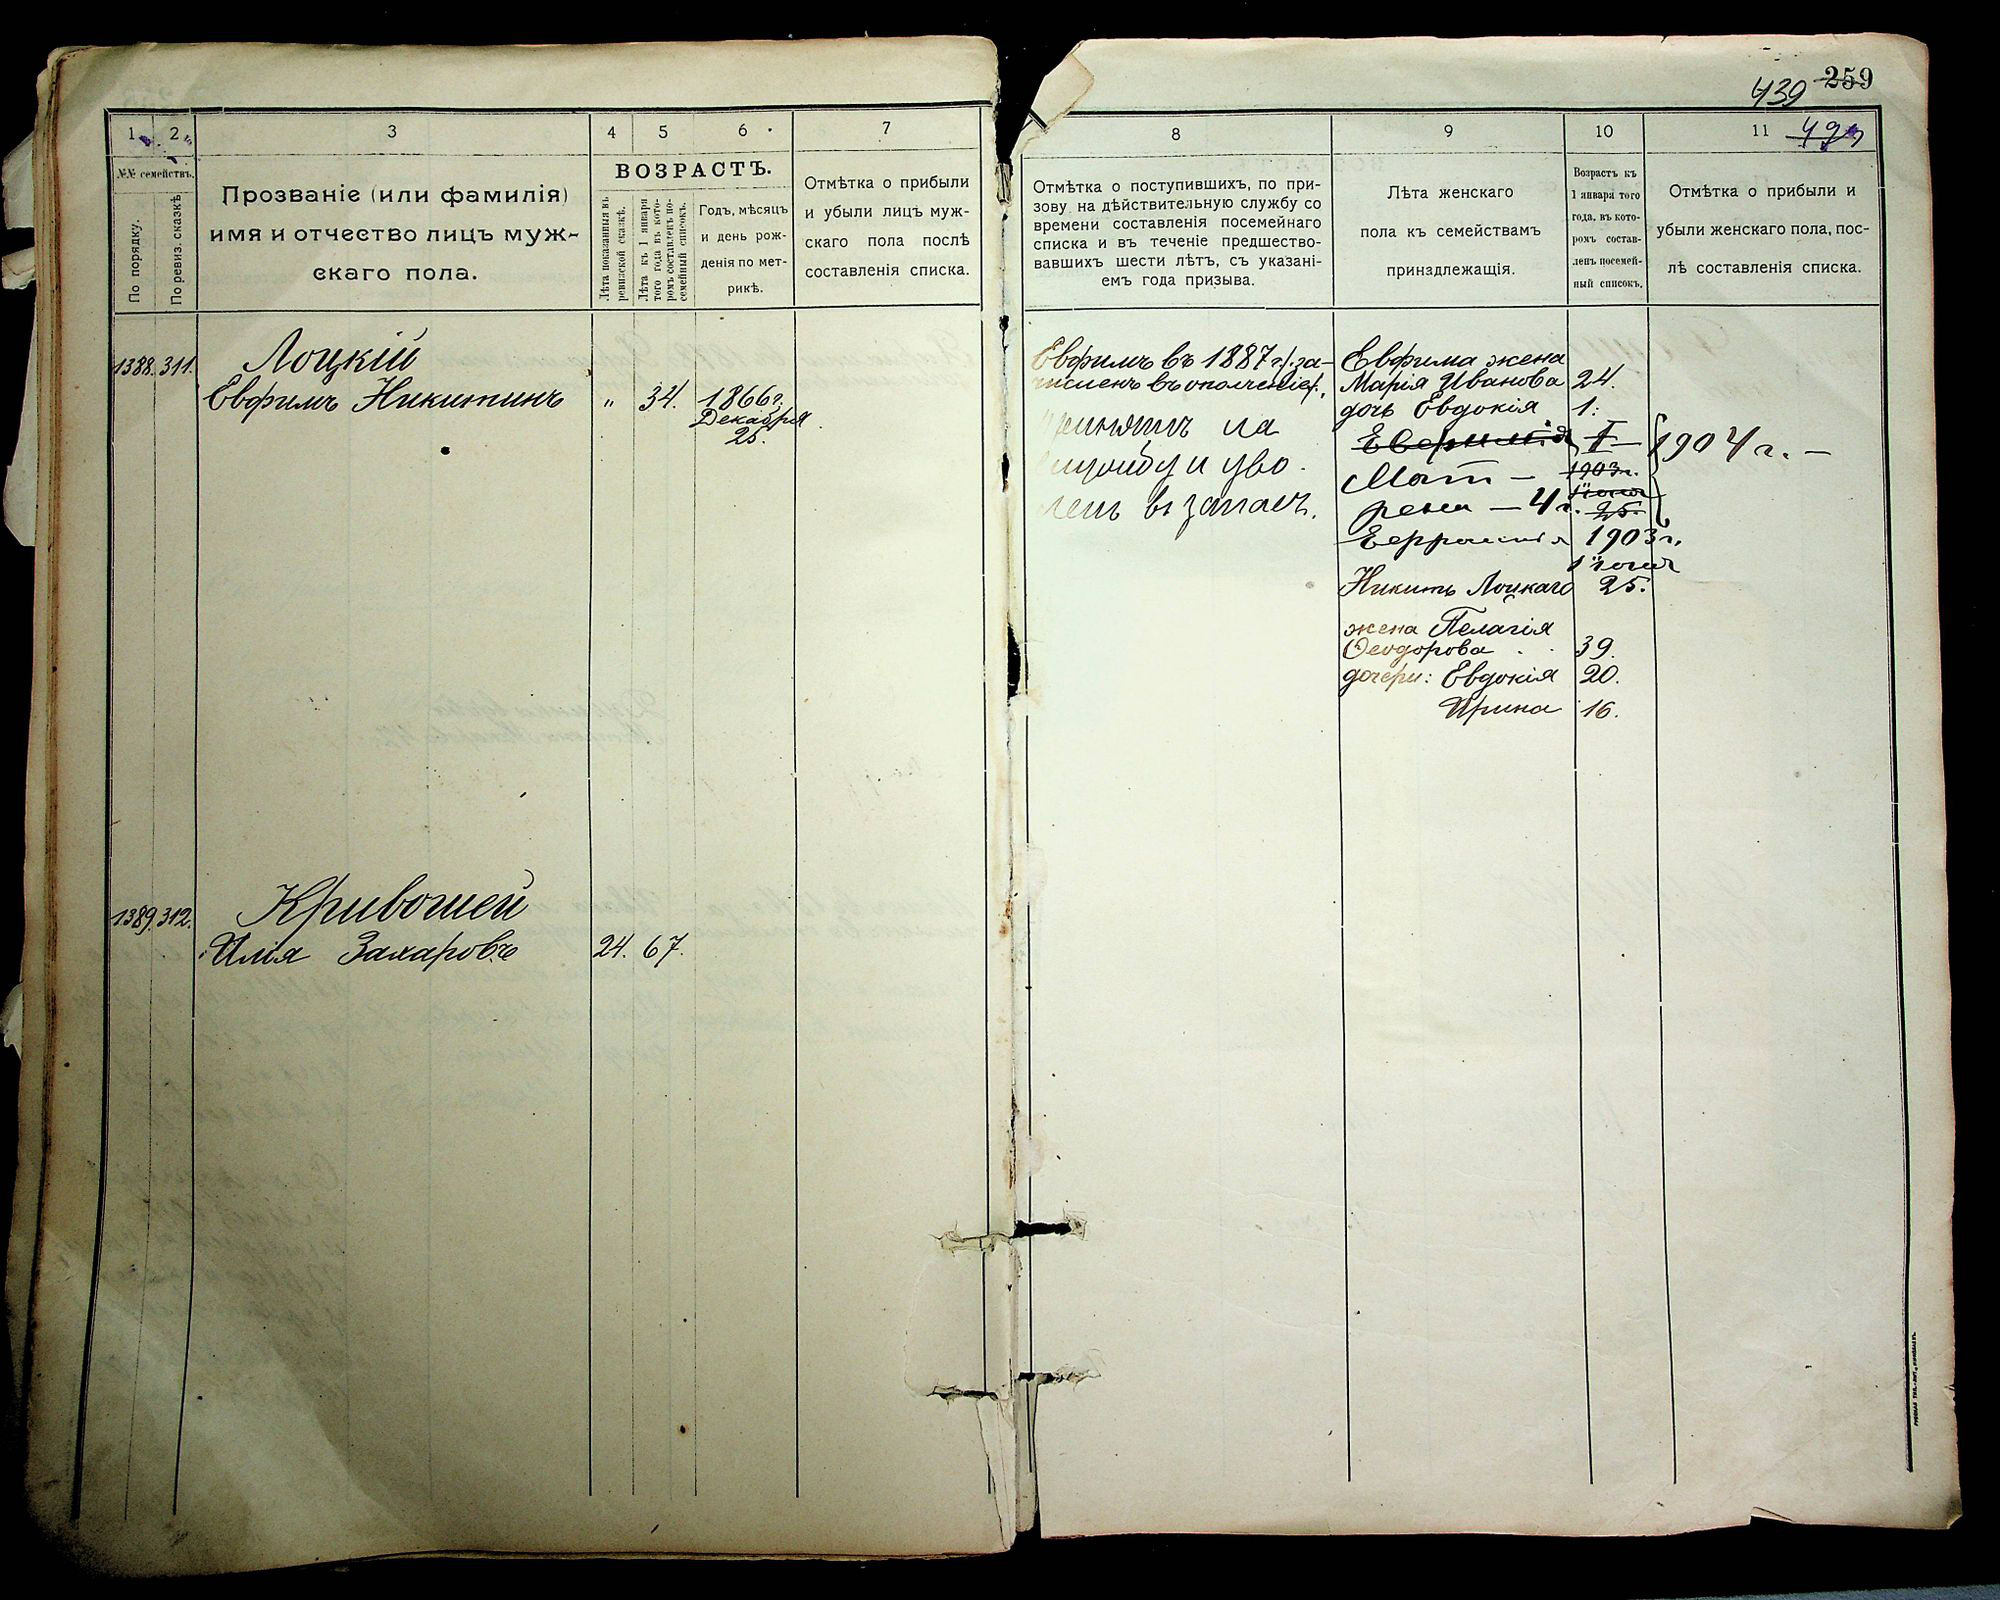 439 259
1 2 3 4 5 6 7
№№ семействъ.
По порядку.
По ревиз. сказкѣ
Прозваніе (или фамилія)
имя и отчество лицъ муж-
скаго пола.
ВОЗРАСТЪ.
Лѣта показанныя въ
ревизской сказкѣ.
Лѣта къ 1 января
того года въ кото-
ромъ составленъ по-
семейный списокъ.
Годъ, мѣсяцъ
и день рож-
денія по мет-
рикѣ.
Отмѣтка о прибыли
и убыли лицъ муж-
скаго пола послѣ
составленія списка.
8 9 10 11
Отмѣтка о поступившихъ, по при-
зову на дѣйствительную службу со
времени составленія посемейнаго
списка и въ теченіе предшество-
вавшихъ шести лѣтъ, съ указані-
емъ года призыва.
Лѣта женскаго
пола къ семействамъ
принздлежащія.
Возрастъ къ
1 января того
года, въ кото-
ромъ состав-
ленъ посемей-
ный списокъ.
Отмѣтка о прибыли и
убыли женскаго пола, пос-
лѣ составленія списка.
1388. 311. Лоцкій
Евфимъ Никитинъ " 34. 1866г.
Декабря
25.
Евфимъ въ 1887 г. за-
численъ въ ополченіе.
принятъ на
службу и уво-
ленъ въ запасъ.
Евфима жена
Марія Иванова 24.
дочь Евдокія 1.
I 1904 г. —
Мат — 1903г.
рена — 4 г. 25.
1903 г.
25.
Никиты Лоцкаго
жена Пелагія
Ѳеодорова 39.
дочери: Евдокія 20.
Ирина 16.
1389. 312. Кривошей
Илія Захаровъ 24. 67.